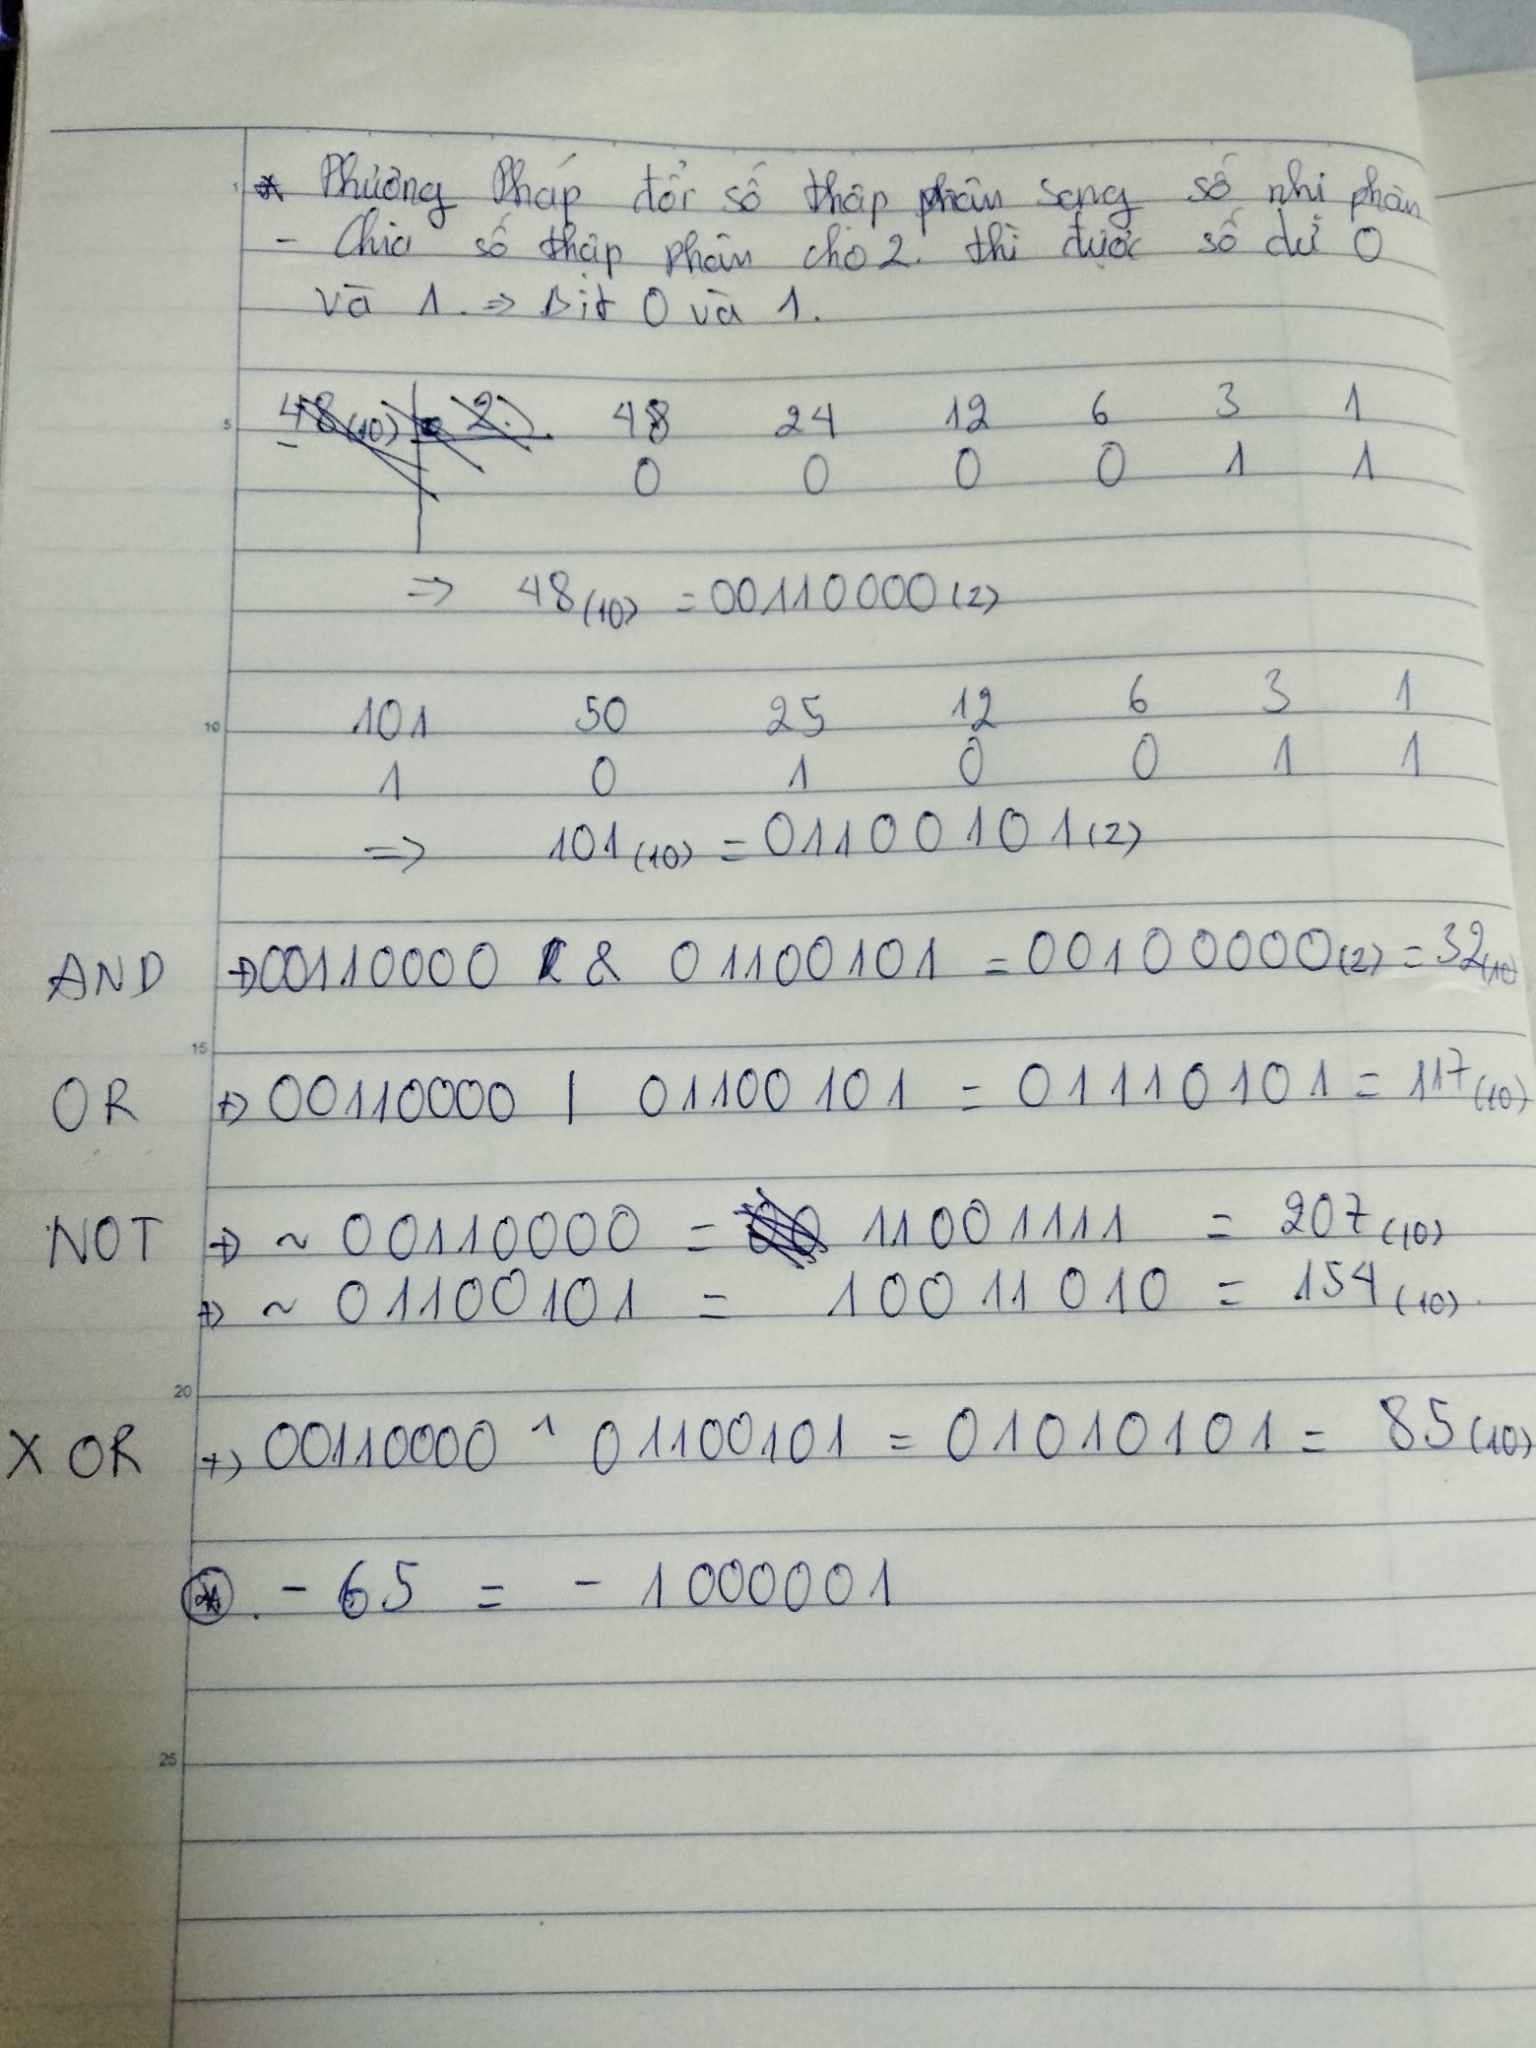 * Phương Pháp đổi số thập phân sang số nhị phân
- Chia số thập phân cho 2. thì được số dư 0
và 1. => bit 0 và 1.
48 24 12 6 3 1
0 0 0 0 1 1
=> 48(10) = 00110000(2)
101 50 25 12 6 3 1
1 0 1 0 0 1 1
=> 101(10) = 01100101(2)
AND +> 00110000 & 01100101 = 00100000(2) = 32(10)
OR +> 00110000 | 01100101 = 01110101 = 117(10)
NOT +> ~ 00110000 = 11001111 = 207(10)
+> ~ 01100101 = 10011010 = 154(10).
XOR +> 00110000 ^ 01100101 = 01010101 = 85(10)
* . - 65 = - 1000001
1
5
10
15
20
25